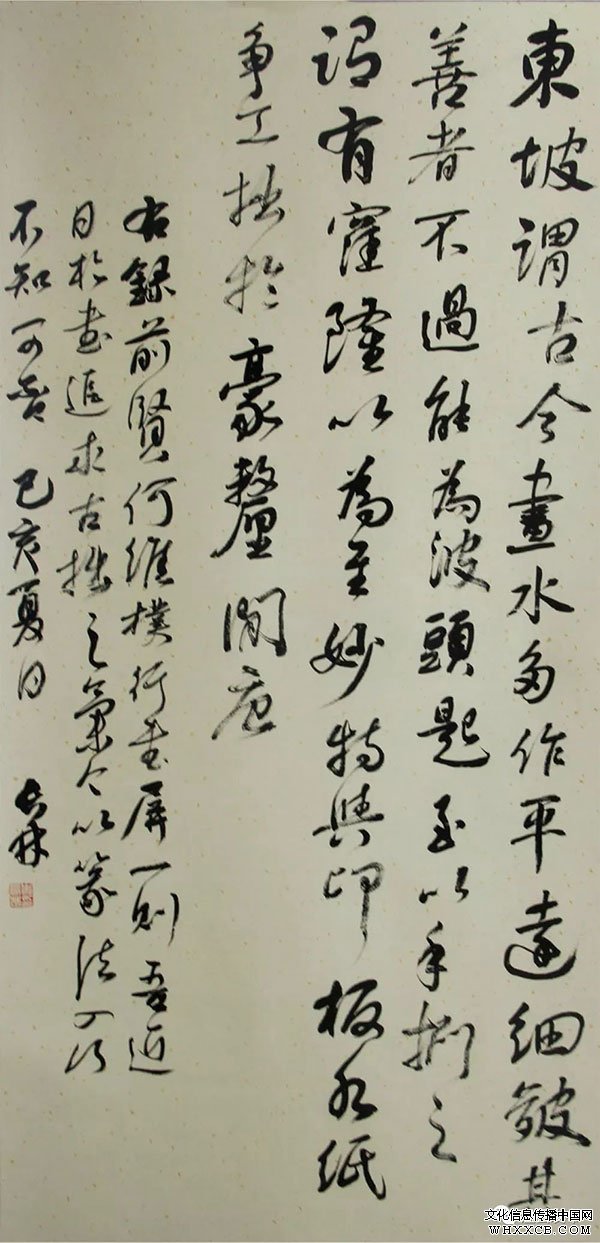 東坡謂古今畫水多作平遠細皴其
善者不過能為波頭起至以手捫之
謂有窪隆以為至妙特與印板水紙
爭工拙於豪釐間也
右錄前賢何維樸行書屏一則吾近
日於書追求古拙之氣今以篆法入行
不知可否 己亥夏日
林
文化信息传播中国网
WHXXCB.COM